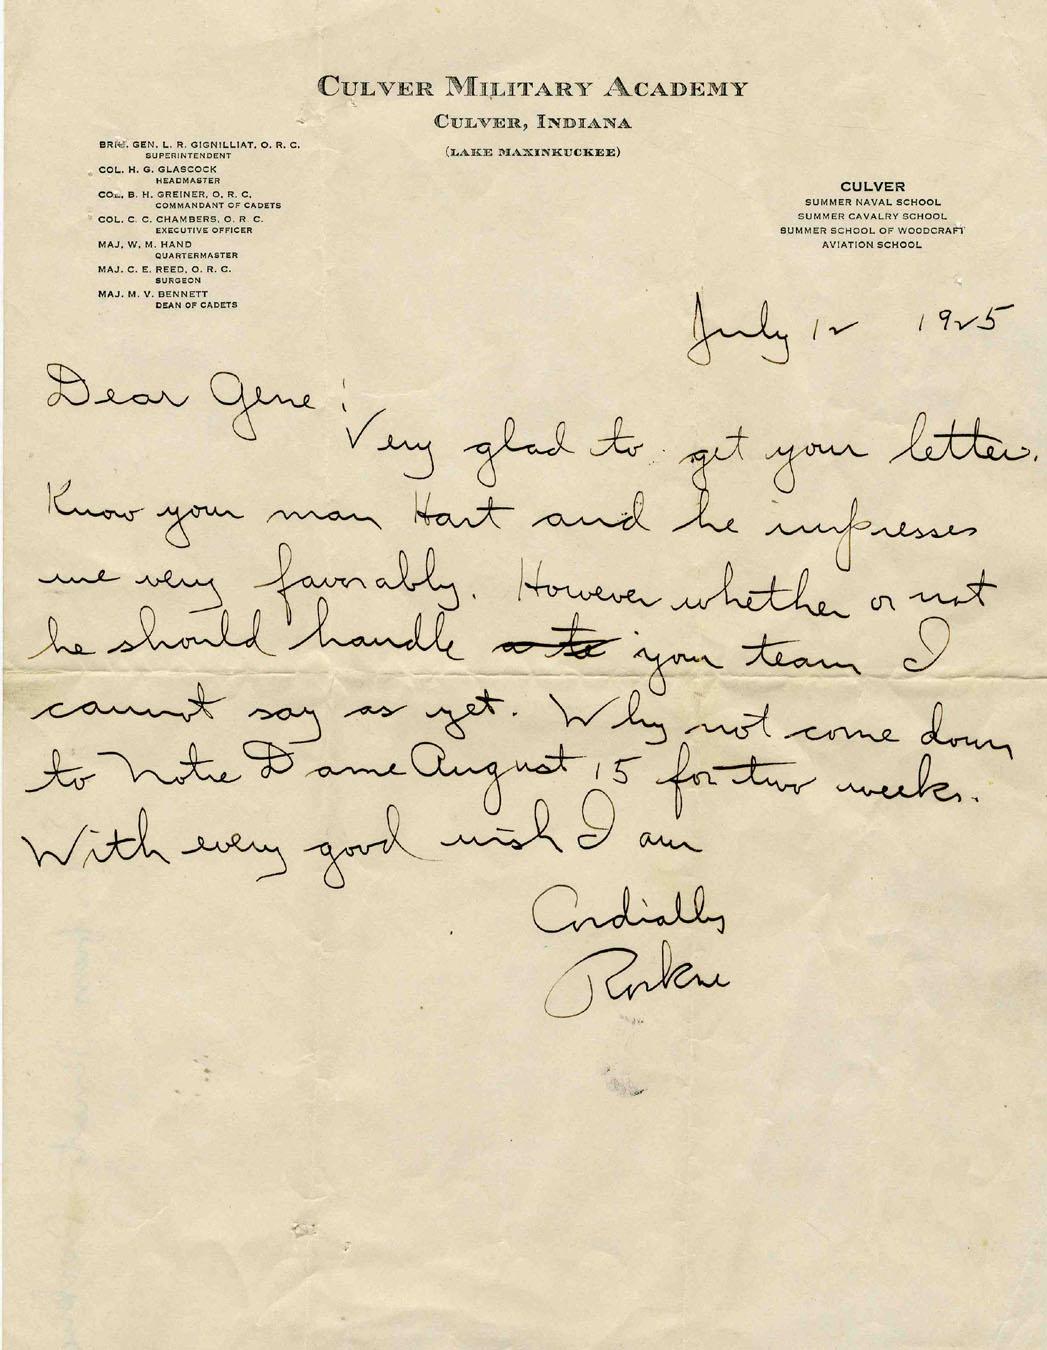 CULVER MILITARY ACADEMY
CULVER, INDIANA
(LAKE MAXINKUCKEE)
BRIG. GEN. L. R. GIGNILLIAT, O. R. C.
SUPERINTENDENT
COL. H. G. GLASCOCK
HEADMASTER
COL. B. H. GREINER, O. R. C.
COMMANDANT OF CADETS
COL. C. C. CHAMBERS, O. R. C.
EXECUTIVE OFFICER
MAJ. W. M. HAND
QUARTERMASTER
MAJ. C. E. REED, O. R. C.
SURGEON
MAJ. M. V. BENNETT
DEAN OF CADETS
CULVER
SUMMER NAVAL SCHOOL
SUMMER CAVALRY SCHOOL
SUMMER SCHOOL OF WOODCRAFT
AVIATION SCHOOL
July 12 1925
Dear Gene!
Very glad to get your letter.
Know your man Hart and he impresses
me very favorably. However whether or not
he should handle your team I
cannot say as yet. Why not come down
to Notre Dame August 15 for two weeks.
With every good wish I am
Cordially
Rockne